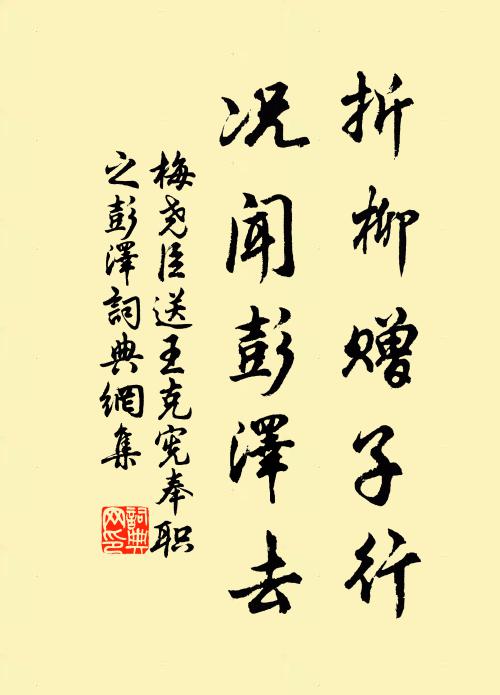 折柳赠子行
况闻彭澤去
梅尧臣送王克宪奉职
之彭澤詞典網集
詞典网印